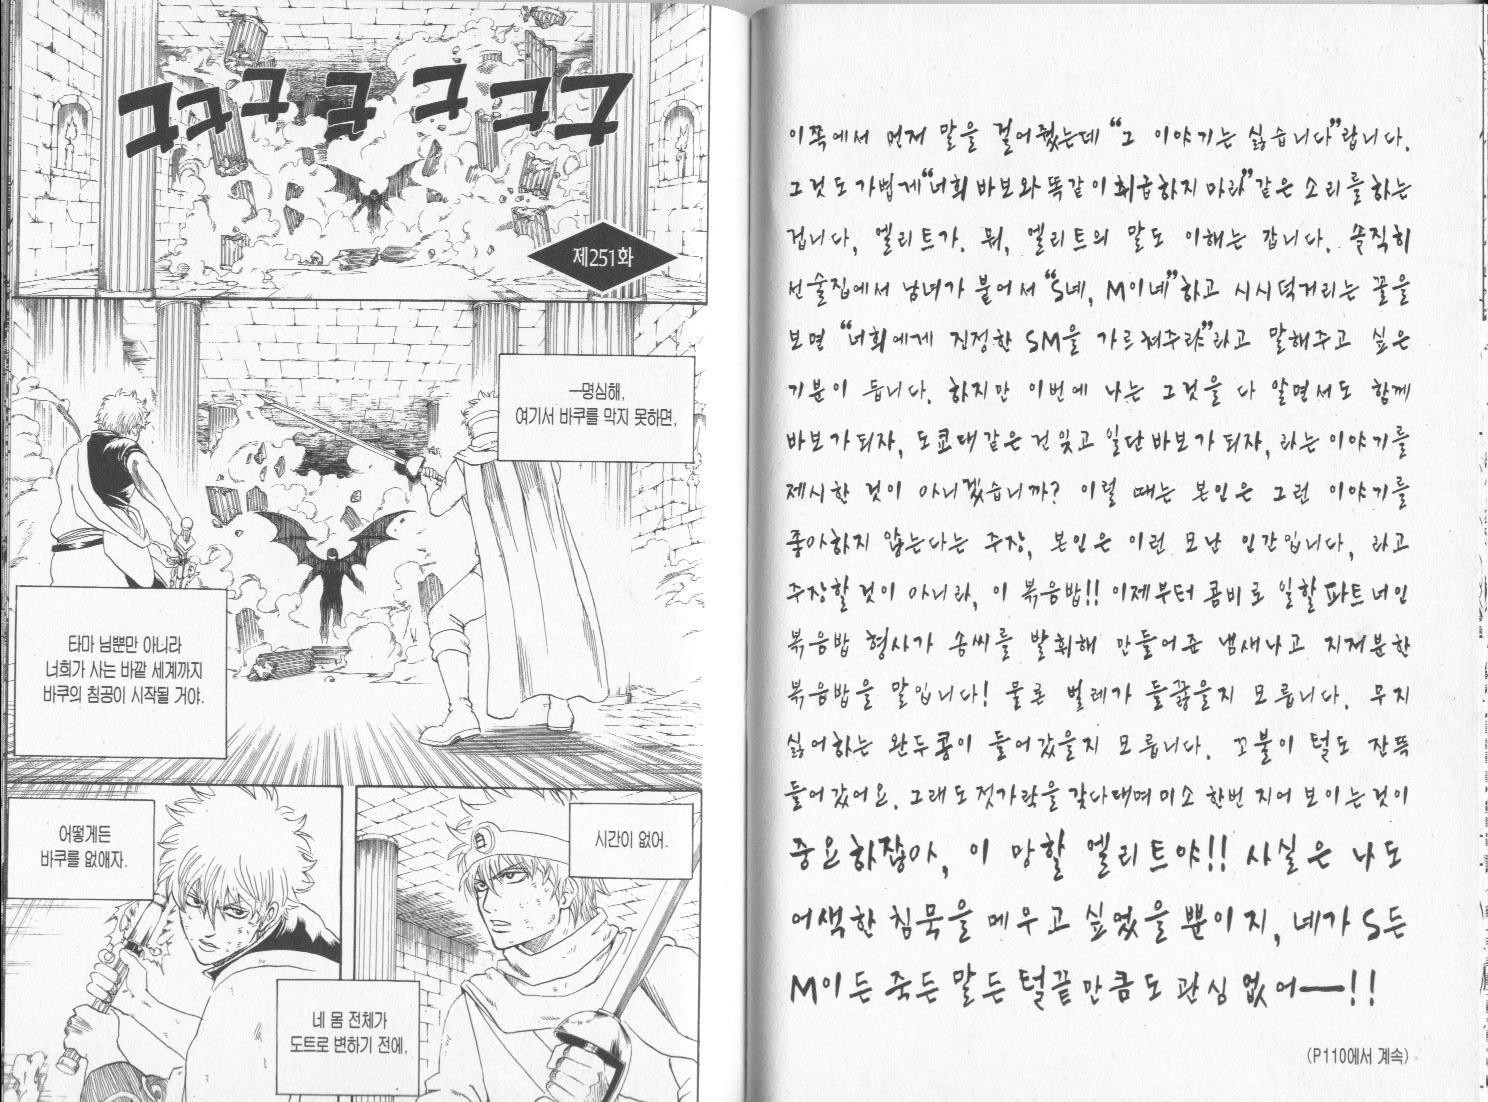 그그그그그그그
제251화
―명심해,
여기서 바쿠를 막지 못하면,
타마 님뿐만 아니라
너희가 사는 바깥 세계까지
바쿠의 침공이 시작될 거야.
어떻게든
바쿠를 없애자.
시간이 없어.
네 몸 전체가
도트로 변하기 전에,
이쪽에서 먼저 말을 걸어줬는데 "그 이야기는 싫습니다"랍니다.
그것도 가볍게 "너희 바보와 똑같이 취급하지 마라" 같은 소리를 하는
겁니다, 엘리트가. 뭐, 엘리트의 말도 이해는 갑니다. 솔직히
선술집에서 남녀가 붙어서 "S네, M이네" 하고 시시덕거리는 꼴을
보면 "너희에게 진정한 SM을 가르쳐주랴"라고 말해주고 싶은
기분이 듭니다. 하지만 이번에 나는 그것을 다 알면서도 함께
바보가 되자, 도쿄대같은 건 잊고 일단 바보가 되자, 라는 이야기를
제시한 것이 아니겠습니까? 이럴 때는 본인은 그런 이야기를
좋아하지 않는다는 주장, 본인은 이런 모난 인간입니다, 라고
주장할 것이 아니라, 이 볶음밥!! 이제부터 콤비로 일할 파트너인
볶음밥 형사가 솜씨를 발휘해 만들어준 냄새나고 지저분한
볶음밥을 말입니다! 물론 벌레가 들끓을지 모릅니다. 무지
싫어하는 완두콩이 들어갔을지 모릅니다. 꼬불이 털도 잔뜩
들어갔어요. 그래도 젓가락을 갖다대며 미소 한번 지어 보이는 것이
중요하잖아, 이 망할 엘리트야!! 사실은 나도
어색한 침묵을 메우고 싶었을 뿐이지, 네가 S든
M이든 죽든 말든 털끝만큼도 관심 없어―!!
(P110에서 계속)